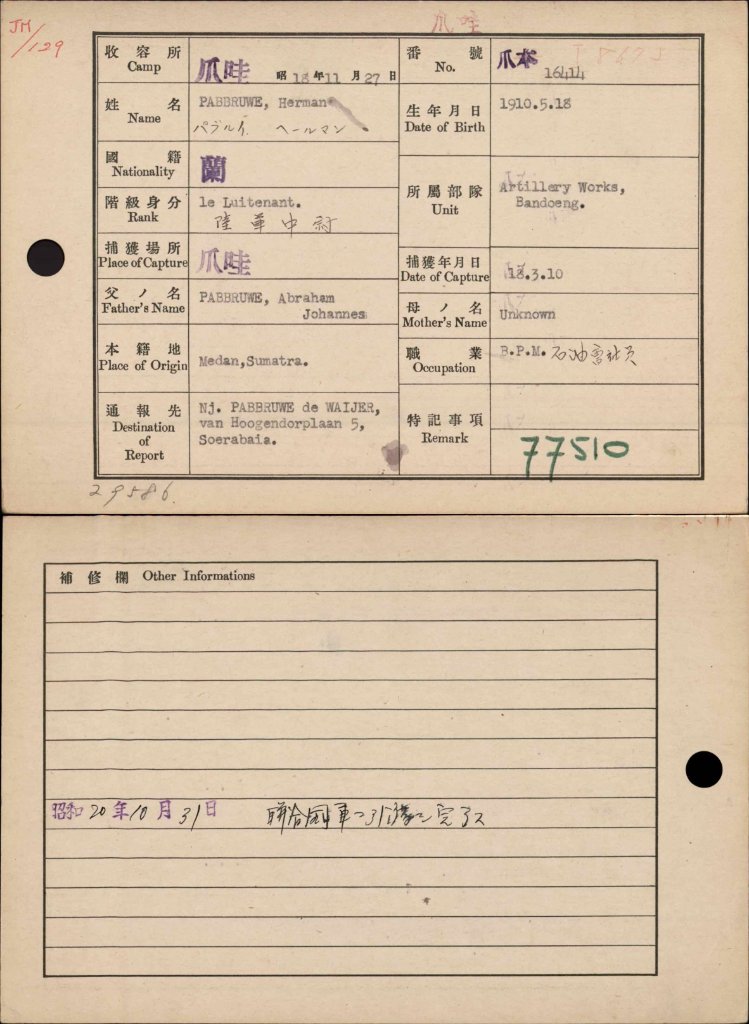 JM/129
爪哇
收容所 Camp
爪哇 昭18年11月27日
番號 No.
爪本 16414
姓名 Name
PABBRUWE, Herman
パブルイ、ヘールマン
生年月日 Date of Birth
1910.5.18
國籍 Nationality
蘭
階級身分 Rank
1e Luitenant.
陸軍中尉
所屬部隊 Unit
Artillery Works,
Bandoeng.
捕獲場所 Place of Capture
爪哇
捕獲年月日 Date of Capture
18.3.10
父ノ名 Father's Name
PABBRUWE, Abraham
Johannes
母ノ名 Mother's Name
Unknown
本籍地 Place of Origin
Medan,Sumatra.
職業 Occupation
B.P.M. 石油會社員
通報先 Destination of Report
Nj. PABBRUWE de WAIJER,
van Hoogendorplaan 5,
Soerabaia.
特記事項 Remark
77510
29586.
補修欄 Other Informations
昭和20年10月31日 聯合國軍ヘ引渡シ完了ス